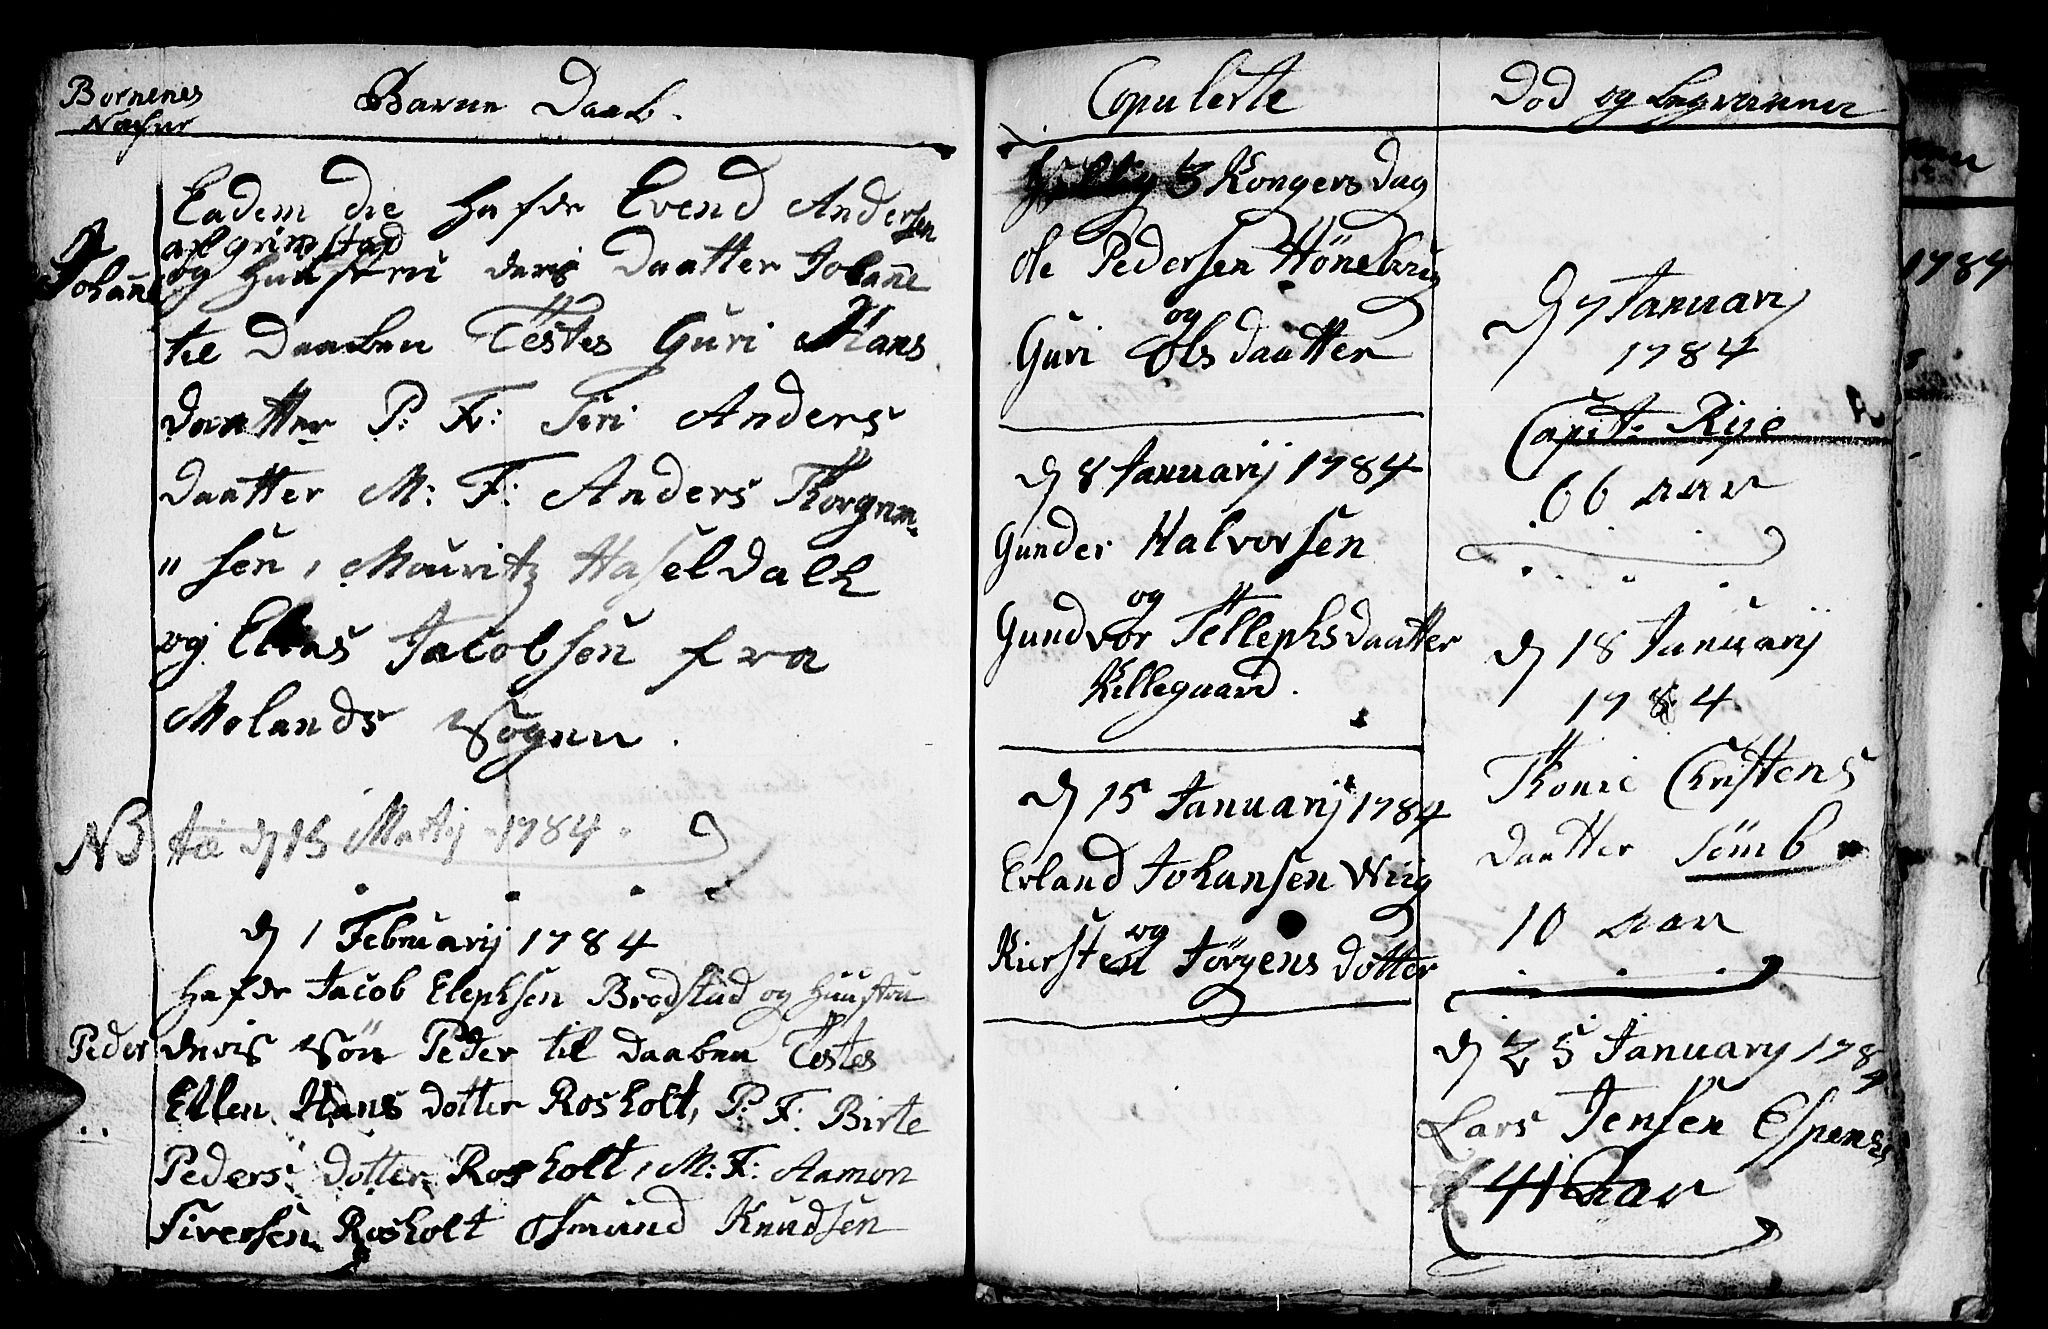 Børnenes
Nafne
Barne Daab.
Eadem die hafde Evend Andersen
af grimstad
Johane
og Huustru deris Daatter Johane
til Daaben Testes Guri Hans
Daatter P: F: Siri Anders
Daatter M: F: Anders Thorgrim
" sen, Mouritz Haseldalh
og Elias Jacobsen fra
Molands Sogen.
NB
til d 15 Martij 1784.
d 1 Februarij 1784
Hafde Jacob Elephsen Brodstad og Huustru
Peder
deris Søn Peder til Daaben Testes
Ellen Hans dotter Rosholt, P: F: Birte
Peders dotter Rosholt, M: F: Aamon
Siversen Rosholt Osmund Knudsen
Copulerte
Hellig 3 Kongers Dag
Ole Pedersen Hönebrug
og
Guri Ols daatter
d 8 Januarij 1784
Gunder Halvorsen
og
Gundvor Tellephsdaatter
Killegaard.
d 15 Januarij 1784
Erland Johansen Wiig
og
Kiersten Jörgens dotter
Død og begravne
d 7 Januarij
1784
Capit: Rise
66 aar
d 18 Januarij
1784
Thonie Christens
Daatter Sömb
10 aar
d 25 Januarij 1784
Lars Jensen Espenes
41 aar
1784